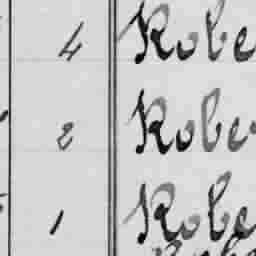 4 Robe
2 Rober
1 Robe